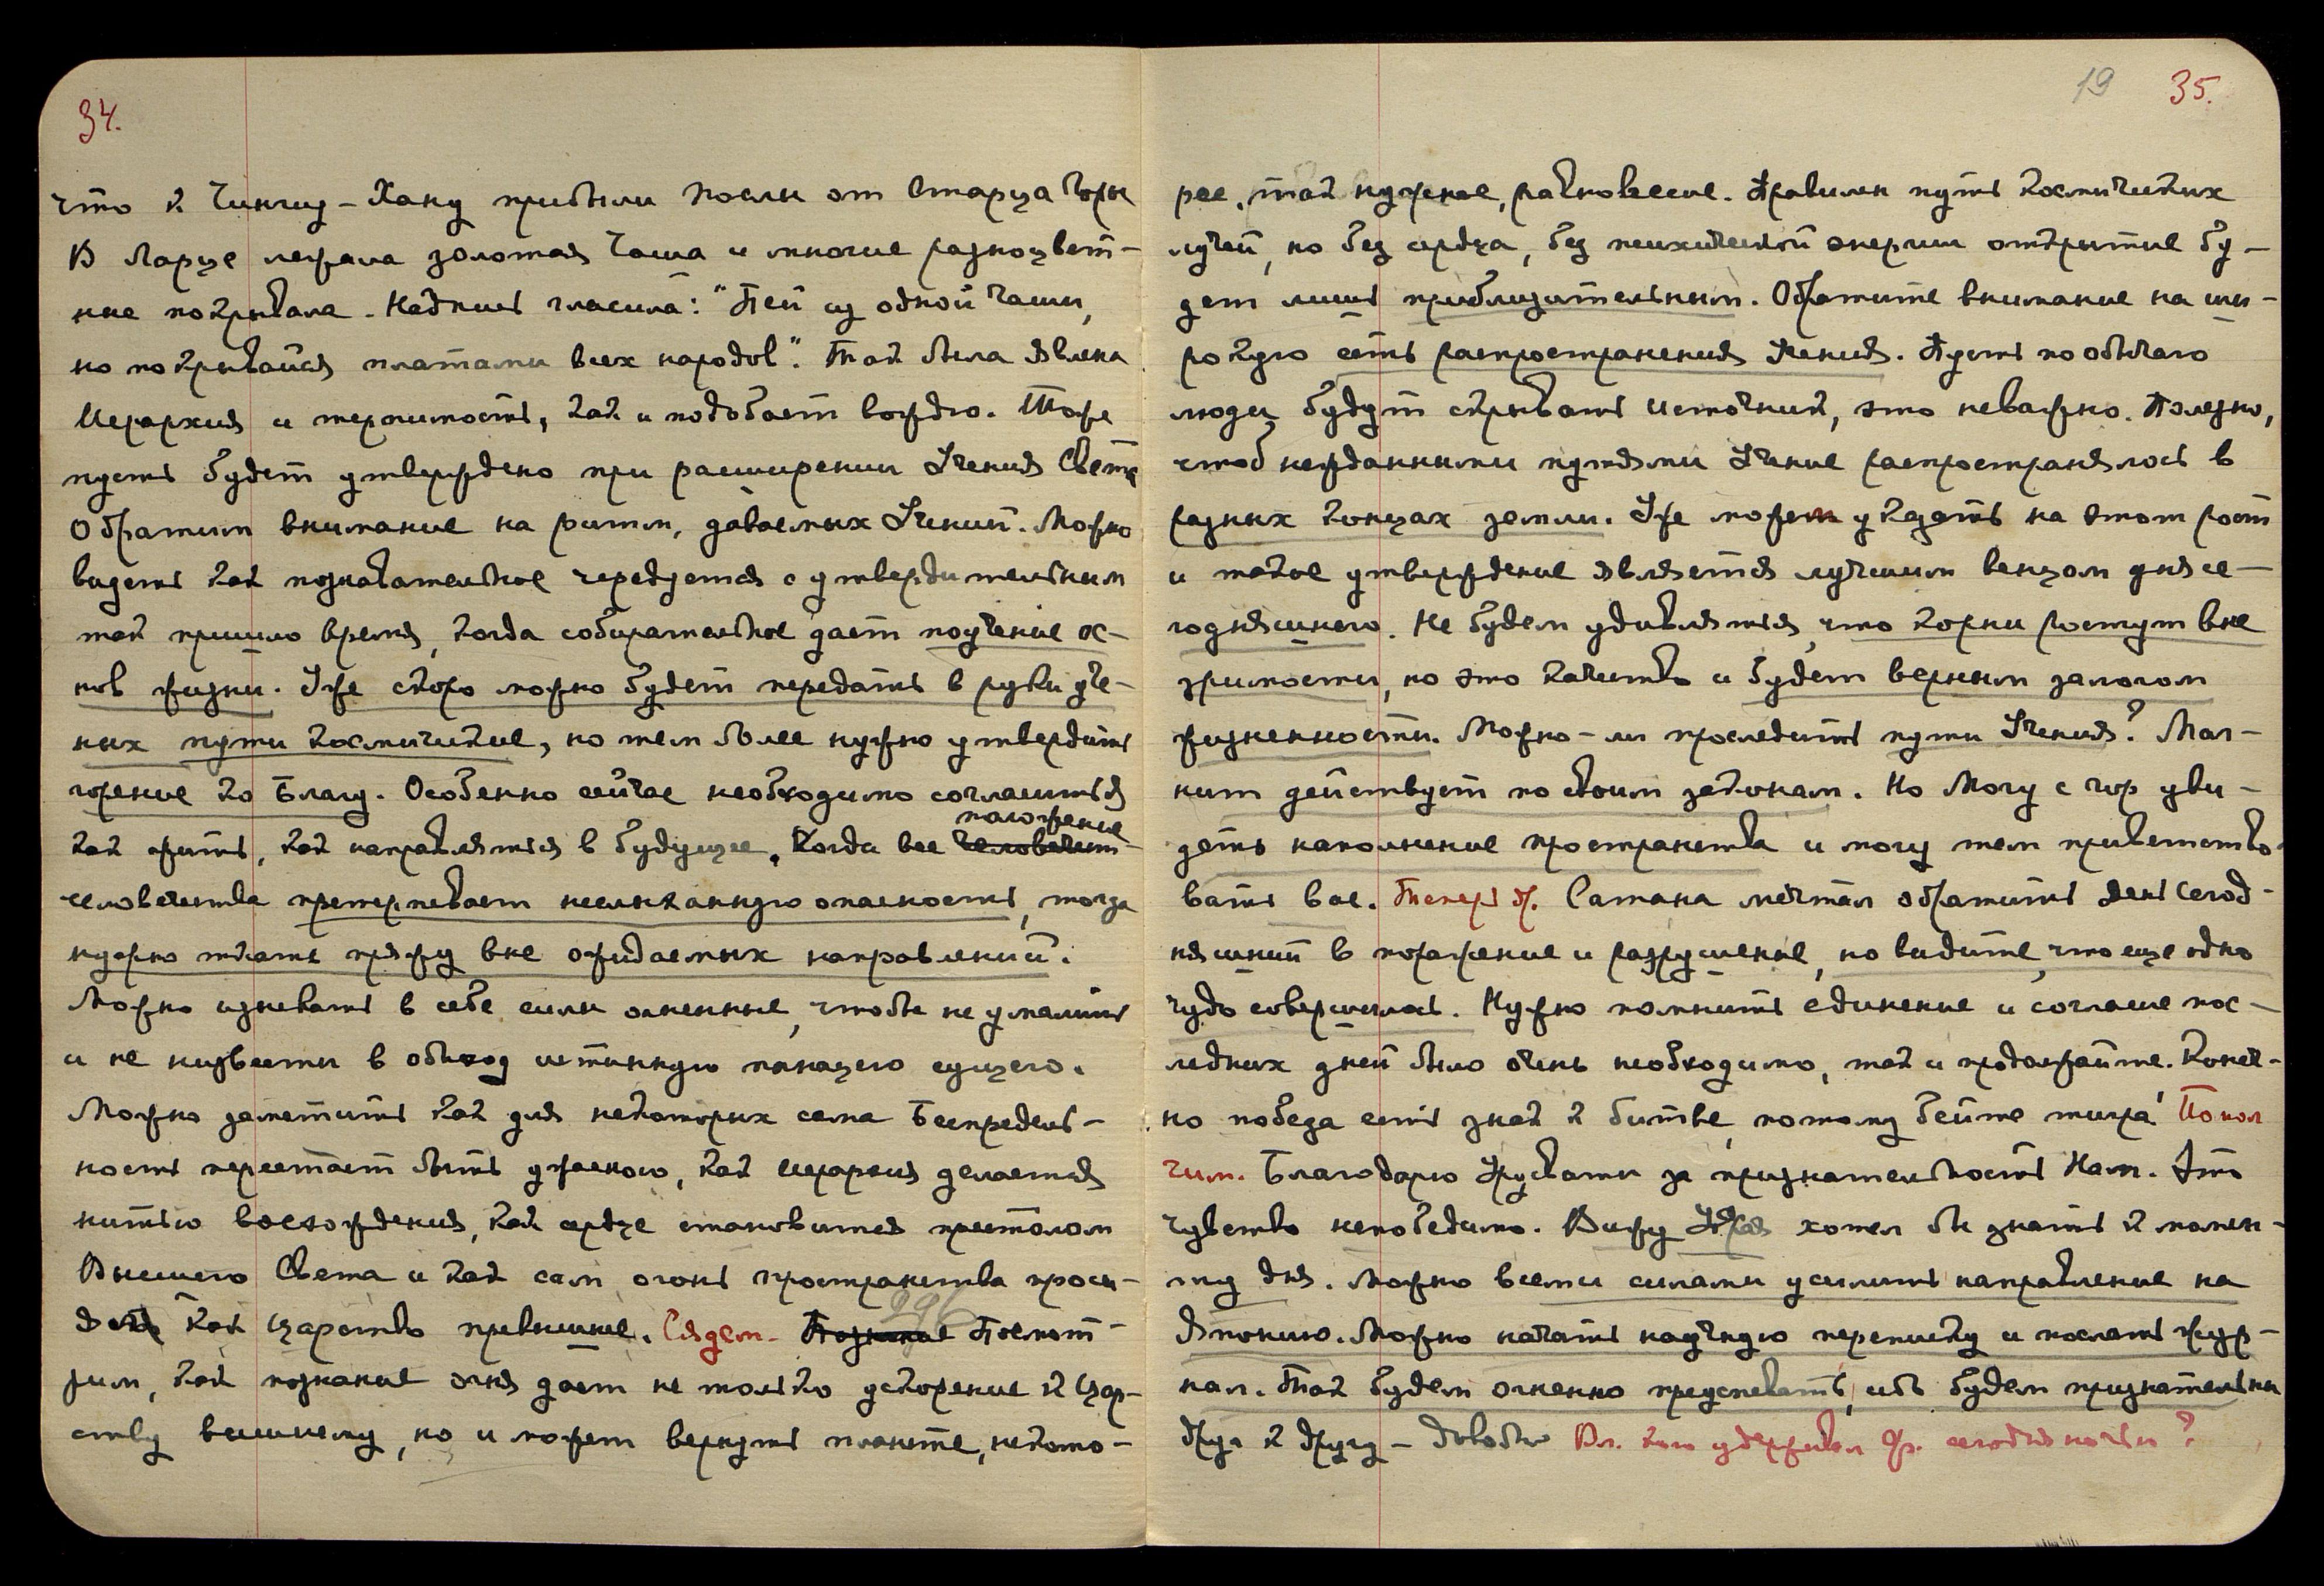 34.
что к Чингиз-Хану прибыли послы от Старца Горы
В Ларце лежала золотая Чаша и многие разноцвет-
ные покрывала. Надпись гласила: "Пей из одной чаши,
но покрывайся платами всех народов". Так была явлена
Иерархия и терпимость, как и подобает вождю. Тоже
пусть будет утверждено при расширении Учения Света
Обратим внимание на ритм, даваемых Учений. Можно
видеть как познавательное чередуется с утвердительным
так пришло время, когда собирательное дает поучение ос-
нов жизни. Уже скоро можно будет передать в руки уче-
ных пути космические, но тем более нужно утвердить
горение ко Благу. Особенно сейчас необходимо согласиться
как жить, как направляться в будущее. Когда все человечест- положение
человечества претерпевает неслыханную опасность, тогда
нужно ткать пряжу вне ожидаемых направлений.
Можно изыскать в себе силы огненные, чтобы не умалить
и не низвести в обиход истинную панацею сущего.
Можно заметить как для некоторых сама Беспредель-
ность перестает быть ужасною, как Иерархия делается
нитью восхождения, как сердце становится престолом
Высшего Света и как сам огонь пространства прос-
как Царство превышние. Сядем. Познание Посмот-
296
рим, как познание огня дает не только ускорение к Цар-
ству высшему, но и может вернуть планете, некото-
19 35.
рое, так нужное, равновесие. Правилен путь космических
лучей, но без сердца, без психической энергии открытие бу-
дет лишь приблизительным. Обратите внимание на ши-
рокую сеть распространения Учения. Пусть по обычаю
люди будут скрывать Источник, это неважно. Полезно,
чтоб нежданными путями Учение распространялось в
разных концах земли. Уже можем указать на этот рост
и такое утверждение является лучшим венцом дня се-
годняшнего. Не будем удивляться, что корни растут вне
зримости, но это качество и будет верным залогом
жизненности. Можно-ли проследить пути Учения? Маг-
нит действует по своим законам. Но Могу с гор уви-
деть наполнение пространства и могу тем приветство-
вать вас. Теперь др. Сатана мечтал обратить день сегод-
няшний в поражение и разрушение, но видите, что еще одно
чудо совершилось. Нужно помнить единение и согласие пос-
ледних дней было очень необходимо, так и продолжайте. Конеч-
но победа есть знак к битве, потому бейте тигра! Помол
чим. Благодарю Урусвати за признательность Нам. Это
чувство непобедимо. Вижу хотел бы знать к момен-
ту дня. Можно всеми силами усилить направление на
Японию. Можно начать научную переписку и послать жур-
нал. Так будем огненно преуспевать, ибо будем признательны
друг к другу - довольно Вл. кого удерживал Фр. сегодня ночью?